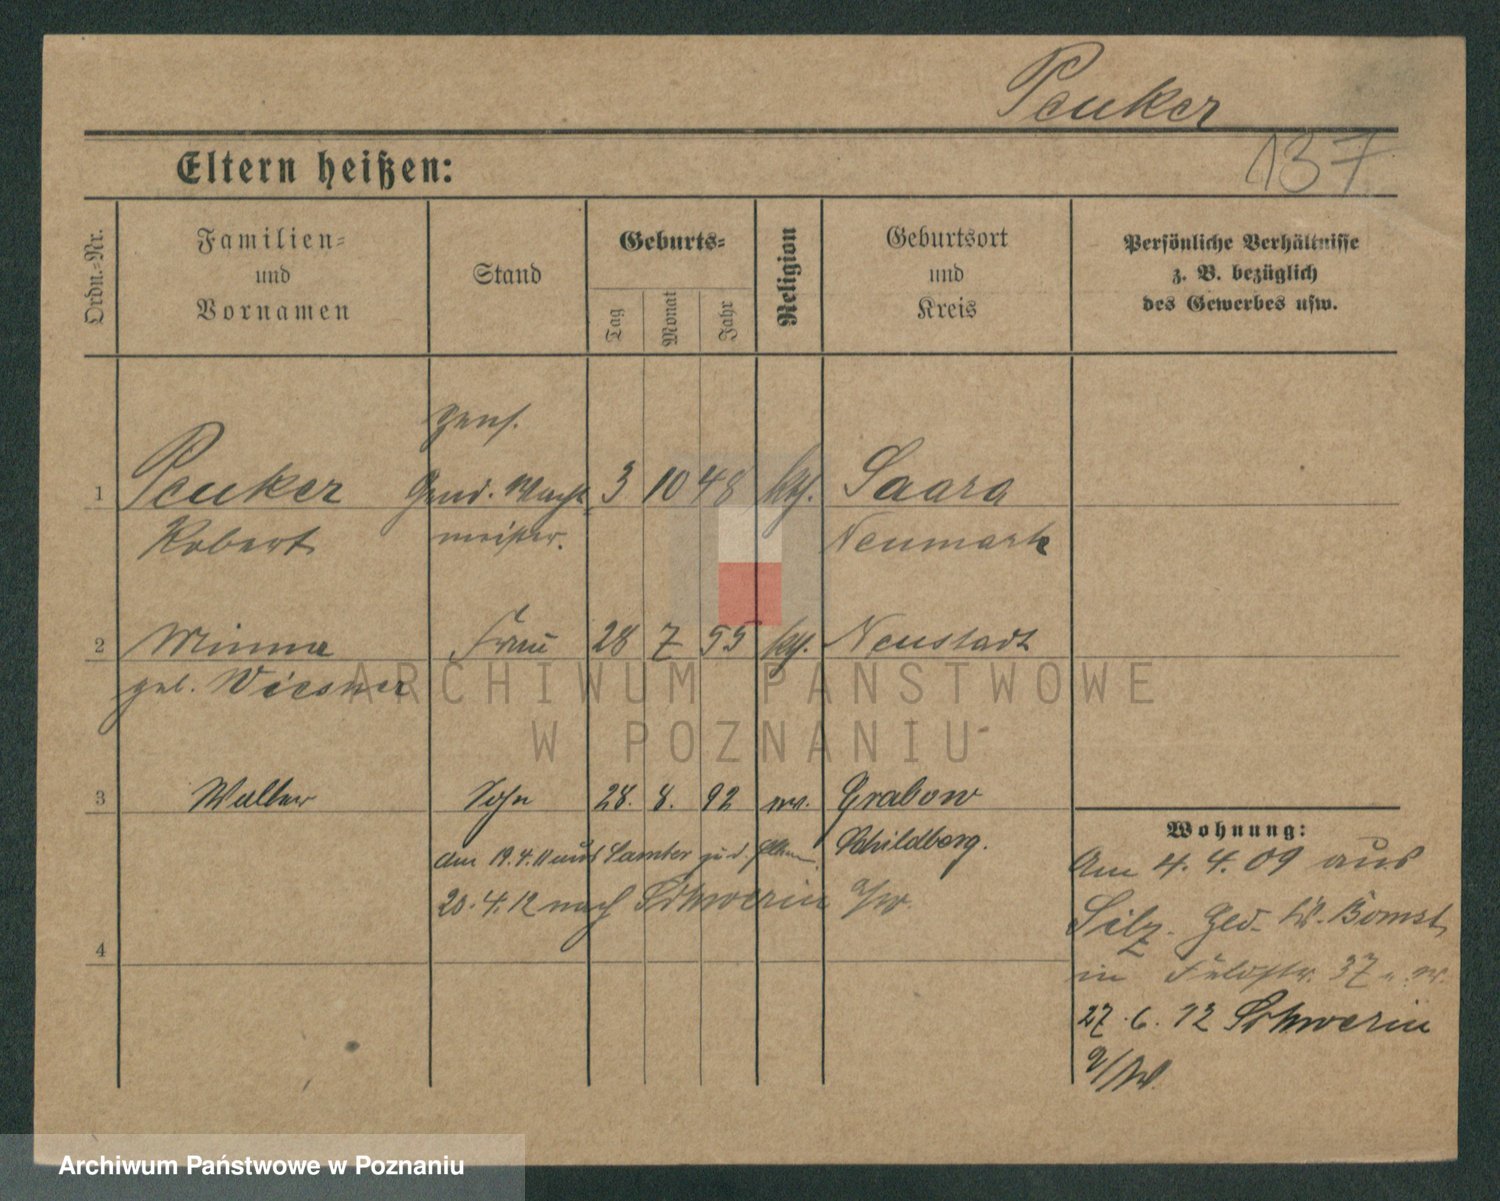 Peuker
137
Eltern heißen:
Ordn.-Nr.
Familien-
und
Vornamen
Stand
Geburts-
Tag
Monat
Jahr
Religion
Geburtsort
und
Kreis
Persönliche Verhältnisse
z. B. bezüglich
des Gewerbes usw.
pens.
1 Peuker Gend. Wacht 3 10 48 Saara
Robert meister. Neumark
2 Minna Frau 28 7 55 Neustadt
geb. Wiesner
3 Walter Sohn 28. 8. 92 Grabow
Schildberg.
am 19.4.11 aus Samter
20.4.12 nach Schwerin a/W.
4
Wohnung:
Am 4.4.09 aus
Bomst
in 37
27.6.12 Schwerin
a/W.
ARCHIWUM PAŃSTWOWE
W POZNANIU
Archiwum Państwowe w Poznaniu